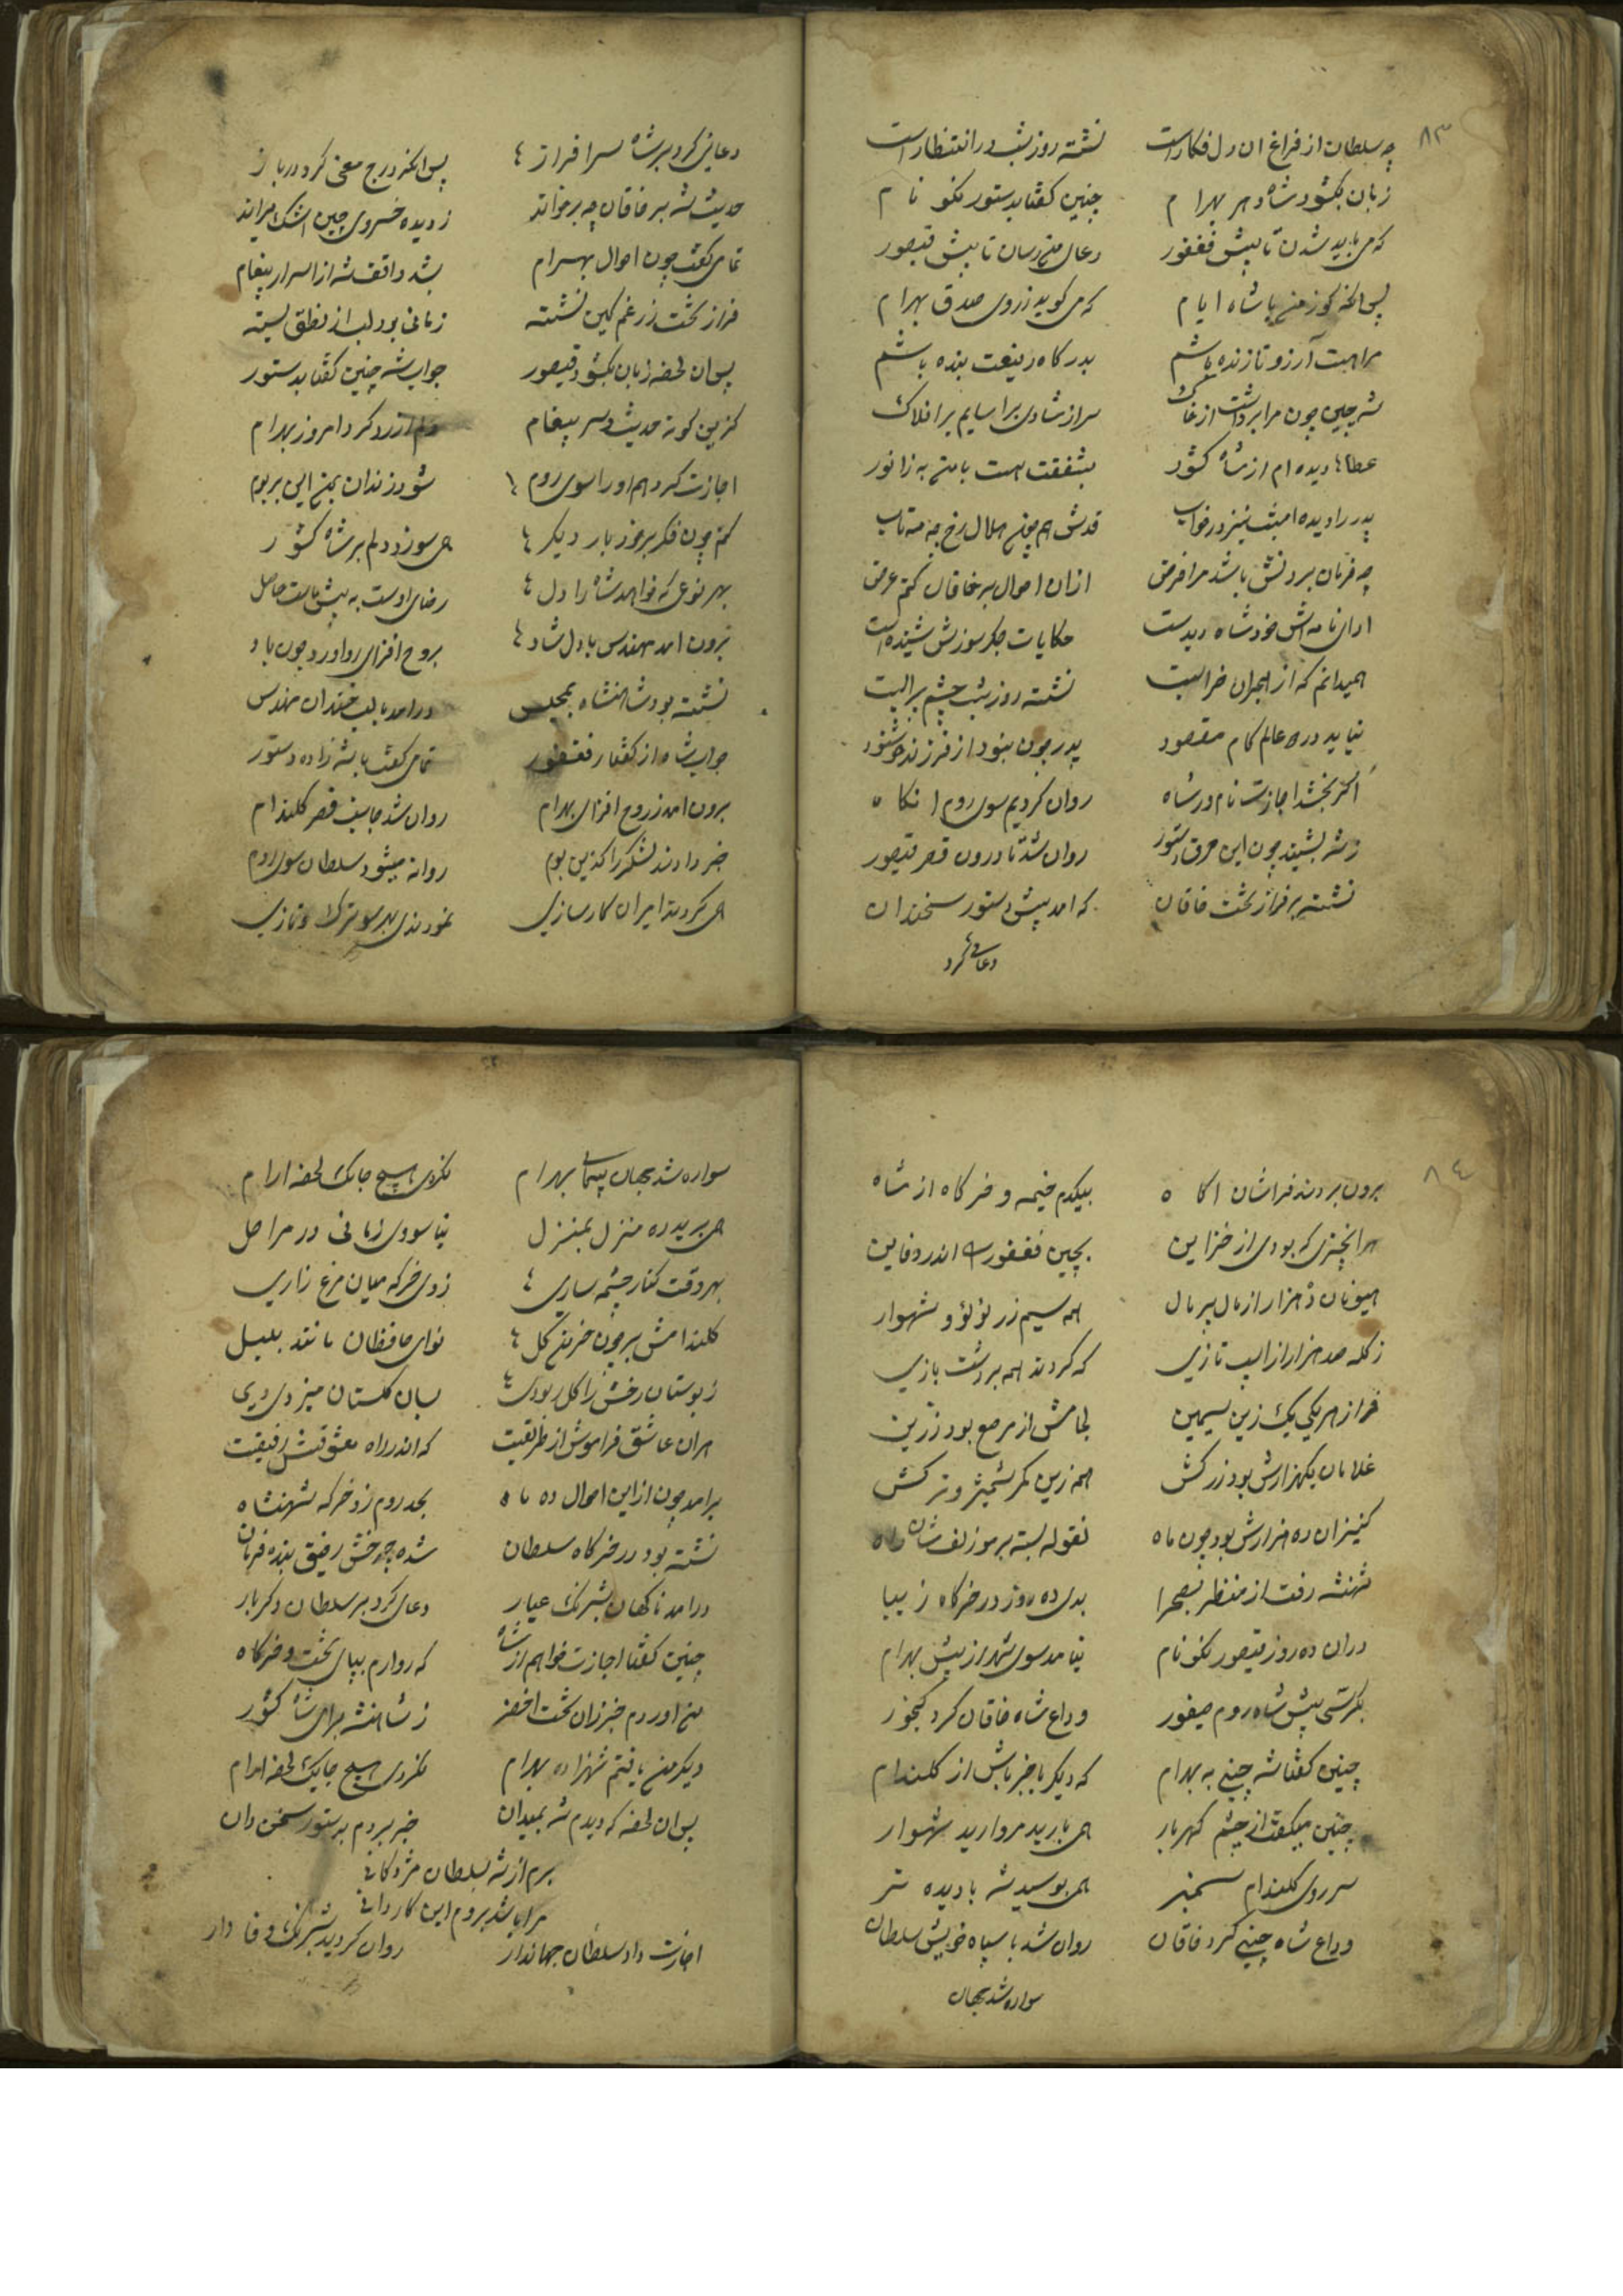 ۸۳
چه سلطان از فراغ ان دل فکار است نشسته روز شب در انتظار است
زبان بکشود شاه دهر بهرام چنین کفتا بدستور نکو نام
که می باید شدن تا پیش فغفور دعای من رسان تا پیش قیصور
پس انکه کوز من با شاه ایام که می کوید ز روی صدق بهرام
مرا هست آرزو تا زنده باشم بدرکاه رفیعت بنده باشم
شه چین چون مرا برداشت از خاک سر از شادی برا سایم بر افلاک
عطاها دیده ام از شاه کشور بشفقت هست با من به ز
پدر را دیده امشب نیز در خواب قدش هم چون هلال رخ چه مه تاب
چه فرمان بردنش باشد مرا فرض ازان احوال بر خاقان کنم عرض
ادای نامه اش خود شاه دیدست حکایات جکر سوزش شنیده است
همیدانم که از هجران خرابست نشسته روز شب چشم پر ابست
نیاید در عالم کام مقصود پدر چون نبود از فرزند خوشنود
اکر بخشد اجازت نام ور شاه روان کردیم سوی روم انکاه
ز شه بشنید چون این حرف دستور روان شد تا درون قصر قیصور
نشسته بر فراز تخت خاقان که امد پیش دستور سخندان
دعای کرد
دعای کرد بر شاه سرافراز پس انکه درج معنی کرد در باز
حدیث شه بر خاقان چه بر خواند ز دیده خسروی چین اشک میراند
تمامی کفت چون احوال بهرام بشد واقف شه از اسرار پیغام
فراز تخت زر غم کین نشسته زمانی بود لب از نطق بسته
پس ان لحظه زبان بکشود قیصور جواب شه چنین کفتا بدستور
کزین کونه حدیث و سر پیغام دلم ازرد کرد امروز بهرام
اجازت کردهم او را سوی روم شود زندان بمن این بر بوم
کنم چون فکر بر خود بار دیکر همی سوزد دلم بر شاه کشور
بهر نوعی که خواهد شاه را دل رضای اوست به پیش ماست حاصل
برون امد مهندس با دل شاد بروح افزای رو اورد چون باد
نشسته بود شاهنشاه بمجلس درامد با لب خندان مهندس
جواب شاه از کفتار فغفور تمامی کفت با شه زاده دستور
برون امد ز روح افزای بهرام روان شد جانب قصر کلندام
خبر دادند لشکر را کزین بوم روانه میشود سلطان سوی روم
همی کردند ایران کارسازی نمودندی بهر سو ترک و تازی
۸۴
برون بردند فراشان اکاه بیکدم خیمه و خرکاه از شاه
هر انچیزی که بودی از خزاین بچین فغفور را اندر دفاین
هیونان ده هزار از مال پر مال همه سیم زر لؤلؤ و شهوار
ز کله صد هزار از اسپ تازی که کردند همه بر دشت بازی
فراز هر یکی یک زین سیمین لجامش از مرصع بود زرین
غلامان یکهزارش بود زرکش همه زرین کمر شمشیر و ترکش
کنیزان ده هزارش بود چون ماه نغوله بسته بر موز لف شان
شهنشه رفت از منظر بصحرا بدی ده روز در خرکاه زیبا
دران ده روز قیصور نکو نام نیامد سوی شهر از پیش بهرام
بکشتی پیش شاه روم صیفور وداع شاه خاقان کرد کنجور
چنین کفتا شه چینی به بهرام که دیکر با خبر باش از کلندام
چنین میکفت از چشم کهربار همی بارید مروارید شهوار
سر روی کلندام سمنبر همی بوسید شه با دیده تر
وداع شاه چینی کرد خاقان روان شد با سپاه خویش سلطان
سواره شد بجهان
سواره شد بجهان پیمای بهرام نکردی هیچ جا یک لحظه ارام
همی برید ره منزل بمنزل نیاسودی زمانی در مراحل
بهر وقت کنار چشمه ساری زدی خرکه میان مرغ زاری
کلندامش ببر چون خرمن کل نوای حافظان مانند بلبل
ز بوستان رخش را کل ربودی بسان کلستان
هران عاشق فراموش از طریقست که اندر راه معشوقش رفیقست
برامد چون از این احوال ده ماه بحد روم زد خرکه شهنشاه
نشسته بود در خرکاه سلطان شده رفیق بنده فرمان
درامد ناکهان شبرنک عیار دعای کرد بر سلطان دکر بار
چنین کفتا اجازت خواهم از شاه که رو ارم بپای تخت و خرکاه
من اوردم خبر زان تخت اخضر ز شاهنشه برای شاه کشور
دیکر من یافتم شهزاده بهرام نکردی هیچ جا یک لحظه ارام
پس ان لحظه که دیدم شه بمیدان خبر بردم بدستور سخن دان
برم از شه بسلطان مژدکانی
مرا باشد بروم این کاردانی
اجازت داد سلطان جهاندار روان کردید شبرنک وفادار